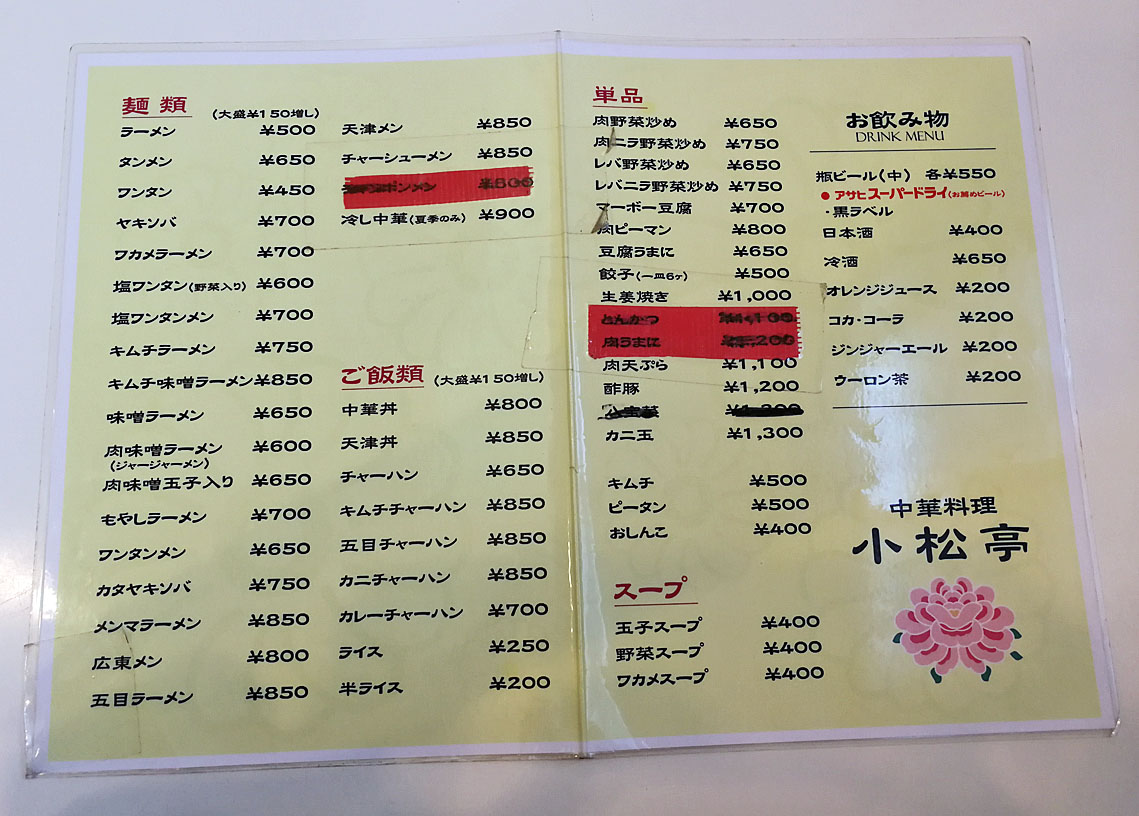 麺類 (大盛¥150増し)
ラーメン ¥500
タンメン ¥650
ワンタン ¥450
ヤキソバ ¥700
ワカメラーメン ¥700
塩ワンタン(野菜入り) ¥600
塩ワンタンメン ¥700
キムチラーメン ¥750
キムチ味噌ラーメン ¥850
味噌ラーメン ¥650
肉味噌ラーメン ¥600
(ジャージャーメン)
肉味噌玉子入り ¥650
もやしラーメン ¥700
ワンタンメン ¥650
カタヤキソバ ¥750
メンマラーメン ¥850
広東メン ¥800
五目ラーメン ¥850
天津メン ¥850
チャーシューメン ¥850
ンメン ¥800
冷し中華(夏季のみ) ¥900
ご飯類 (大盛¥150増し)
中華丼 ¥800
天津丼 ¥850
チャーハン ¥650
キムチチャーハン ¥850
五目チャーハン ¥850
カニチャーハン ¥850
カレーチャーハン ¥700
ライス ¥250
半ライス ¥200
単品
肉野菜炒め ¥650
肉ニラ野菜炒め ¥750
レバ野菜炒め ¥650
レバニラ野菜炒め ¥750
マーボー豆腐 ¥700
肉ピーマン ¥800
豆腐うまに ¥650
餃子(一皿6ヶ) ¥500
生姜焼き ¥1,000
とんかつ ¥1,100
肉うまに ¥1,200
肉天ぷら ¥1,100
酢豚 ¥1,200
カニ玉 ¥1,300
キムチ ¥500
ピータン ¥500
おしんこ ¥400
スープ
玉子スープ ¥400
野菜スープ ¥400
ワカメスープ ¥400
お飲み物
DRINK MENU
瓶ビール(中) 各¥550
●アサヒスーパードライ(お薦めビール)
・黒ラベル
日本酒 ¥400
冷酒 ¥650
オレンジジュース ¥200
コカ・コーラ ¥200
ジンジャーエール ¥200
ウーロン茶 ¥200
中華料理
小松亭